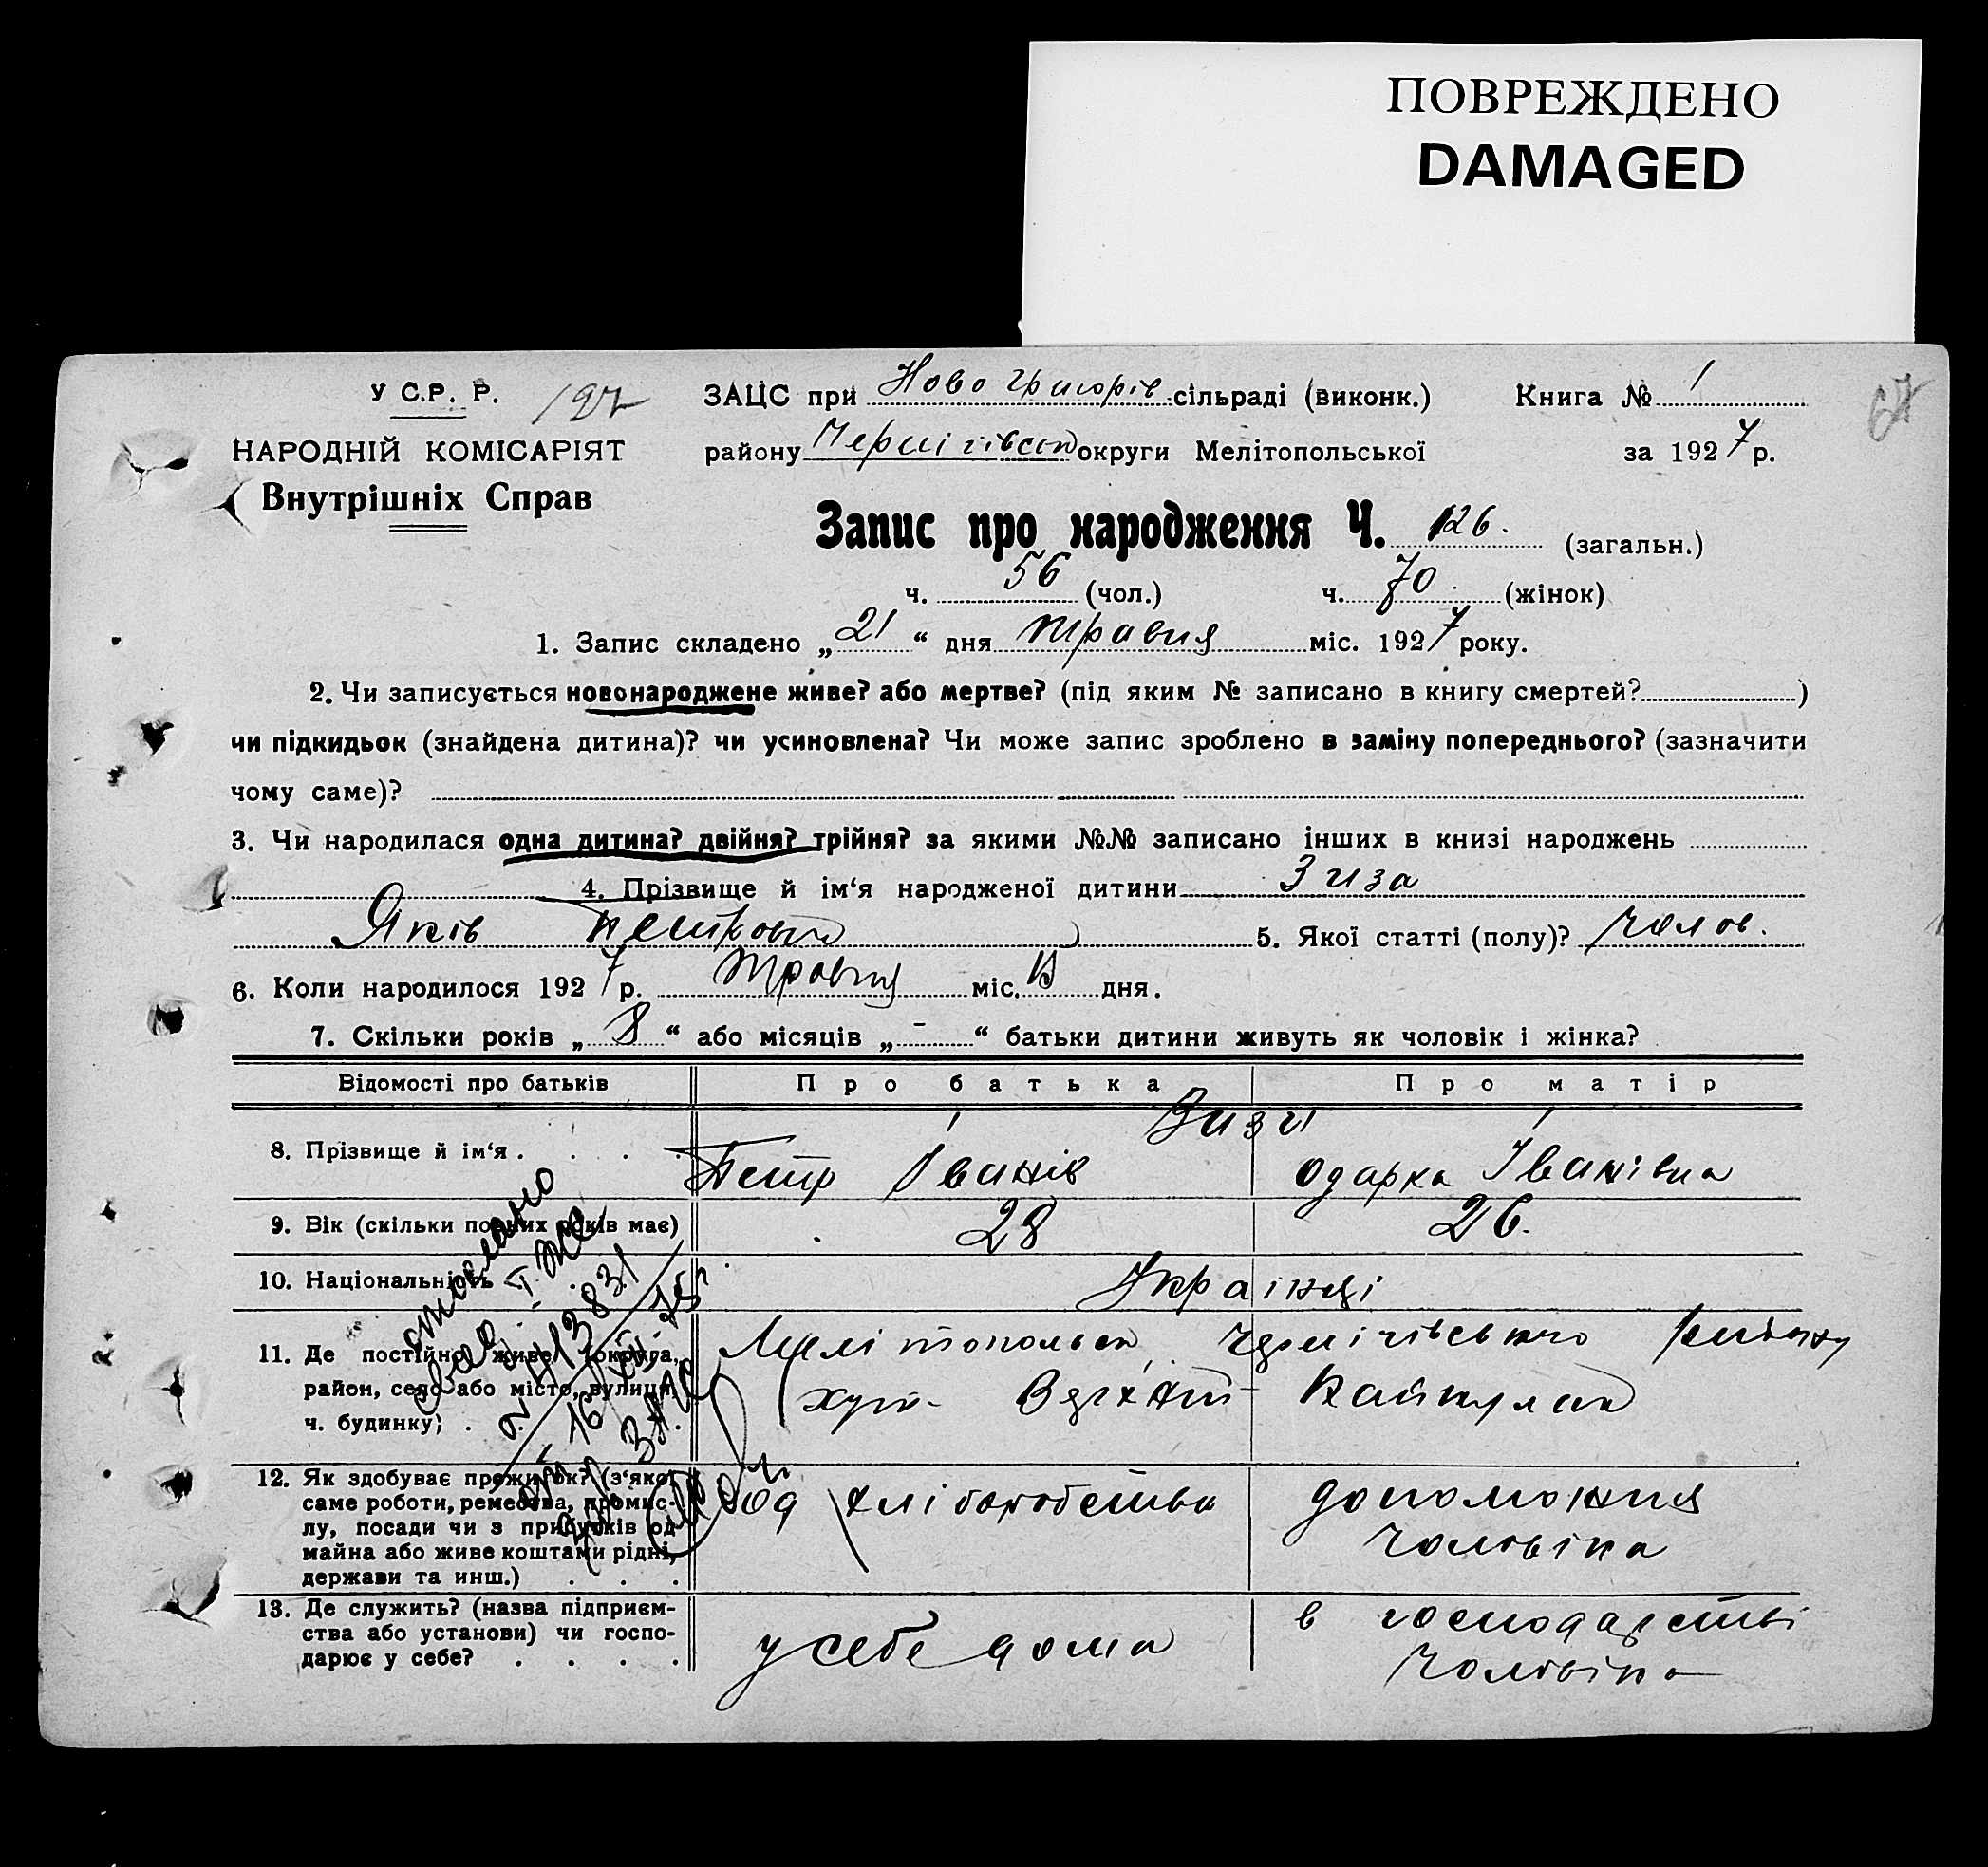 ПОВРЕЖДЕНО
DAMAGED
У С.Р. Р. 197 ЗАЦС при Ново Григорів сільраді (виконк.) Книга № 1 67
НАРОДНІЙ КОМІСАРІЯТ району Чернігівськ округи Мелітопольської за 1927 р.
Внутрішніх Справ
Запис про народження Ч. 126. (загальн.)
ч. 56 (чол.) ч. 70 (жінок)
1. Запис складено „ 21 “ дня травня міс. 1927 року.
2. Чи записується новонароджене живе? або мертве? (під яким № записано в книгу смертей? )
чи підкидьок (знайдена дитина)? чи усиновлена? Чи може запис зроблено в заміну попереднього? (зазначити
чому саме)?
3. Чи народилася одна дитина? двійня? трійня? за якими №№ записано інших в книзі народжень
4. Прізвище й ім‘я народженої дитини Зиза
Яків Петров 5. Якої статті (полу)? Чолов.
6. Коли народилося 1927 р. травня міс. дня.
7. Скільки років „ 8 “ або місяців „ - “ батьки дитини живуть як чоловік і жінка?
Відомості про батьків Про батька Про матір
Зизи
8. Прізвище й ім‘я . . . . Петр Іванів Одарка Іванівна
9. Вік (скільки повних років має) 28 26.
10. Національність Українці
11. Де постійно живе (округа, Мелітопольск, Чернігівського району
район, село або місто, вулиця, хут.
ч. будинку; .
12. Як здобуває прожиток? (з‘якої
саме роботи, ремества, промис- од хліборобства допоможня
лу, посади чи з прибутків од чоловіка
майна або живе коштами рідні,
держави та инш.) . . .
13. Де служить? (назва підприєм- в господарстві
ства або установи) чи госпо- у себе дома чоловіка
дарює у себе? . . . .